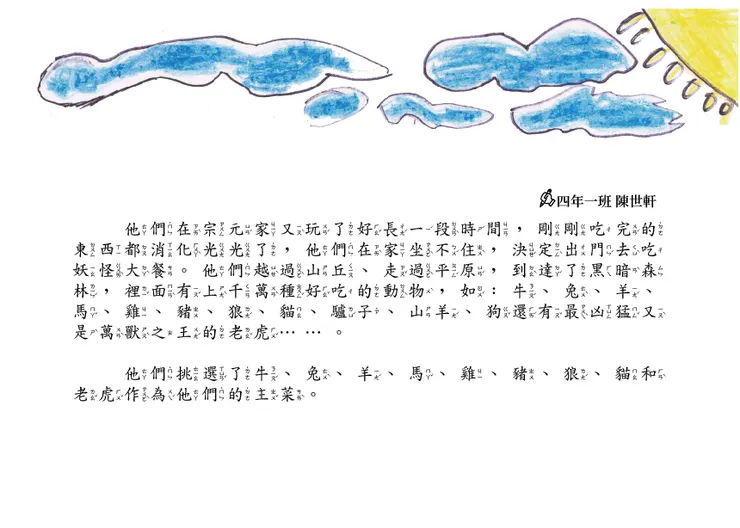 四年一班 陳世軒
他們在宗元家又玩了好長一段時間，剛剛吃完的
東西都消化光光了，他們在家坐不住，決定出門去吃
妖怪大餐。他們越過山丘、走過平原，到達了黑暗森
林，裡面有上千萬種好吃的動物，如：牛、兔、羊、
馬、雞、豬、狼、貓、驢子、山羊、狗還有最凶猛又
是萬獸之王的老虎……。
他們挑選了牛、兔、羊、馬、雞、豬、狼、貓和
老虎作為他們的主菜。